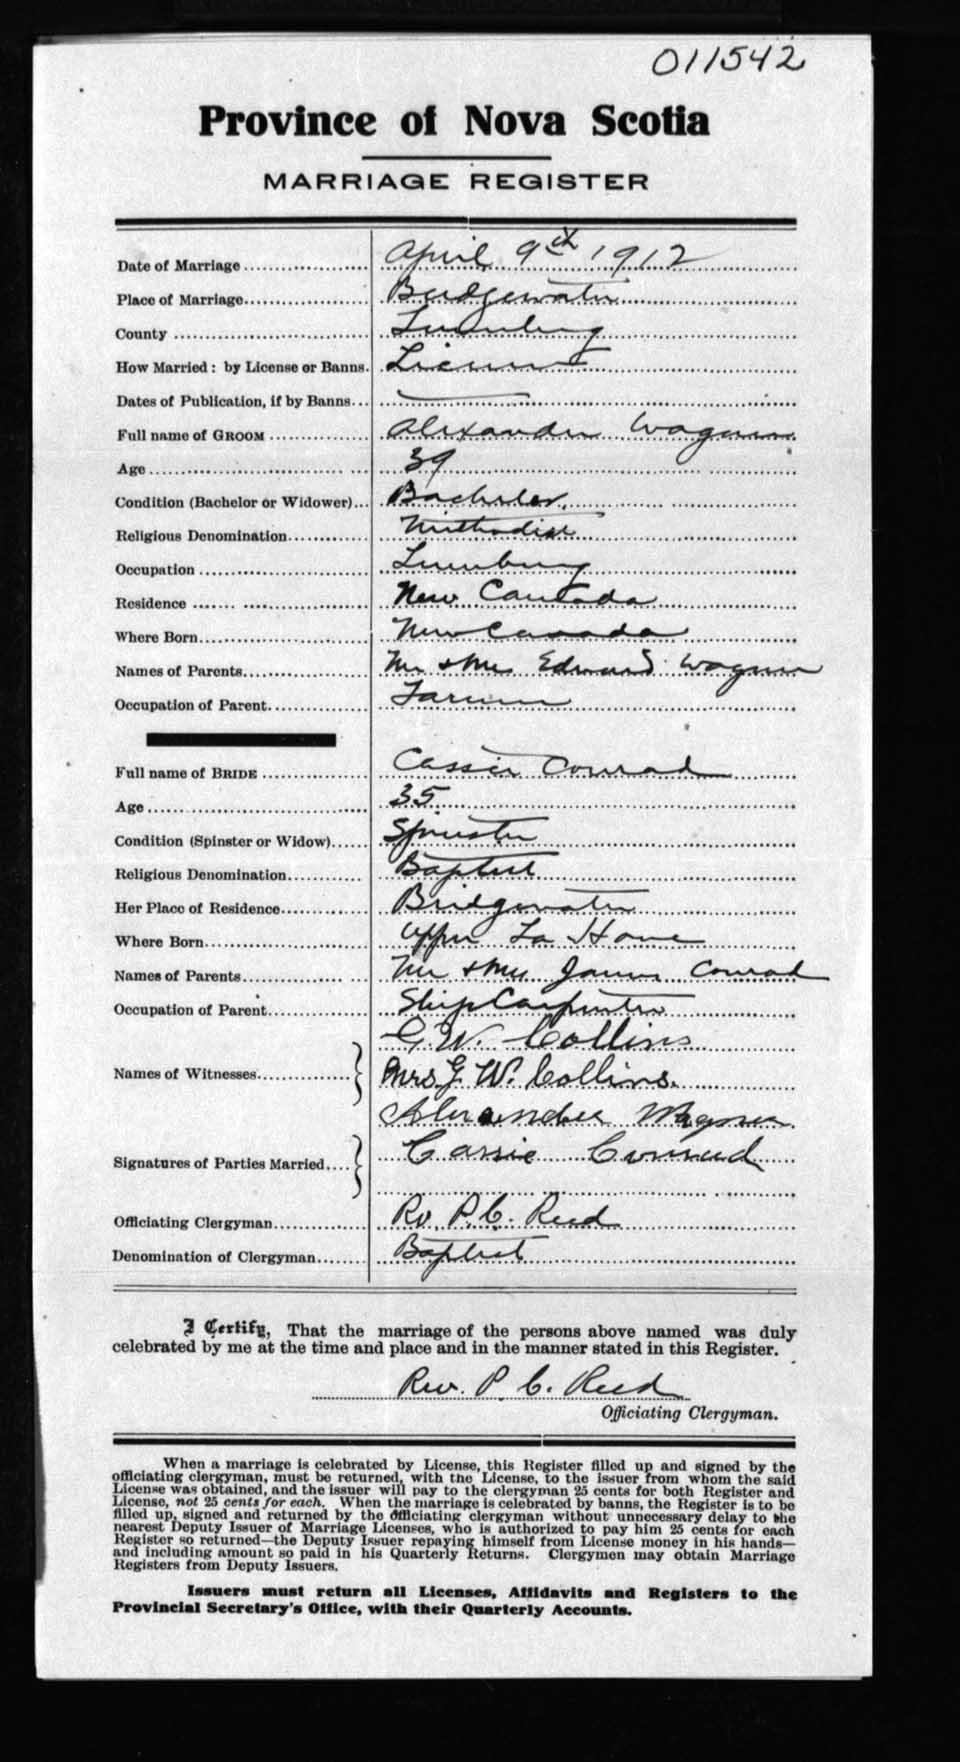 011542
Province of Nova Scotia
MARRIAGE REGISTER
Date of Marriage April 9th 1912
Place of Marriage Bridgewater
County Lunenburg
How Married: by License or Banns. License
Dates of Publication, if by Banns
Full name of GROOM Alexander Wagner
Age 39
Condition (Bachelor or Widower) Bachelor
Religious Denomination Methodist
Occupation
Residence New Canada
Where Born New Canada
Names of Parents Mr & Mrs Edward Wagner
Occupation of Parent Farmer
Full name of BRIDE Cassie Conrad
Age 35
Condition (Spinster or Widow) Spinster
Religious Denomination Baptist
Her Place of Residence Bridgewater
Where Born Upper La Have
Names of Parents Mr & Mrs James Conrad
Occupation of Parent Ship Carpenter
G. W. Collins
Names of Witnesses Mrs. G. W. Collins.
Alexander Wagner
Signatures of Parties Married Cassie Conrad
Officiating Clergyman Rv. P. C. Reed
Denomination of Clergyman Baptist
I Certify, That the marriage of the persons above named was duly
celebrated by me at the time and place and in the manner stated in this Register.
Rev. P. C. Reed
Officiating Clergyman.
When a marriage is celebrated by License, this Register filled up and signed by the
officiating clergyman, must be returned, with the License, to the issuer from whom the said
License was obtained, and the issuer will pay to the clergyman 25 cents for both Register and
License, not 25 cents for each. When the marriage is celebrated by banns, the Register is to be
filled up, signed and returned by the officiating clergyman without unnecessary delay to the
nearest Deputy Issuer of Marriage Licenses, who is authorized to pay him 25 cents for each
Register so returned—the Deputy Issuer repaying himself from License money in his hands—
and including amount so paid in his Quarterly Returns. Clergymen may obtain Marriage
Registers from Deputy Issuers.
Issuers must return all Licenses, Affidavits and Registers to the
Provincial Secretary's Office, with their Quarterly Accounts.